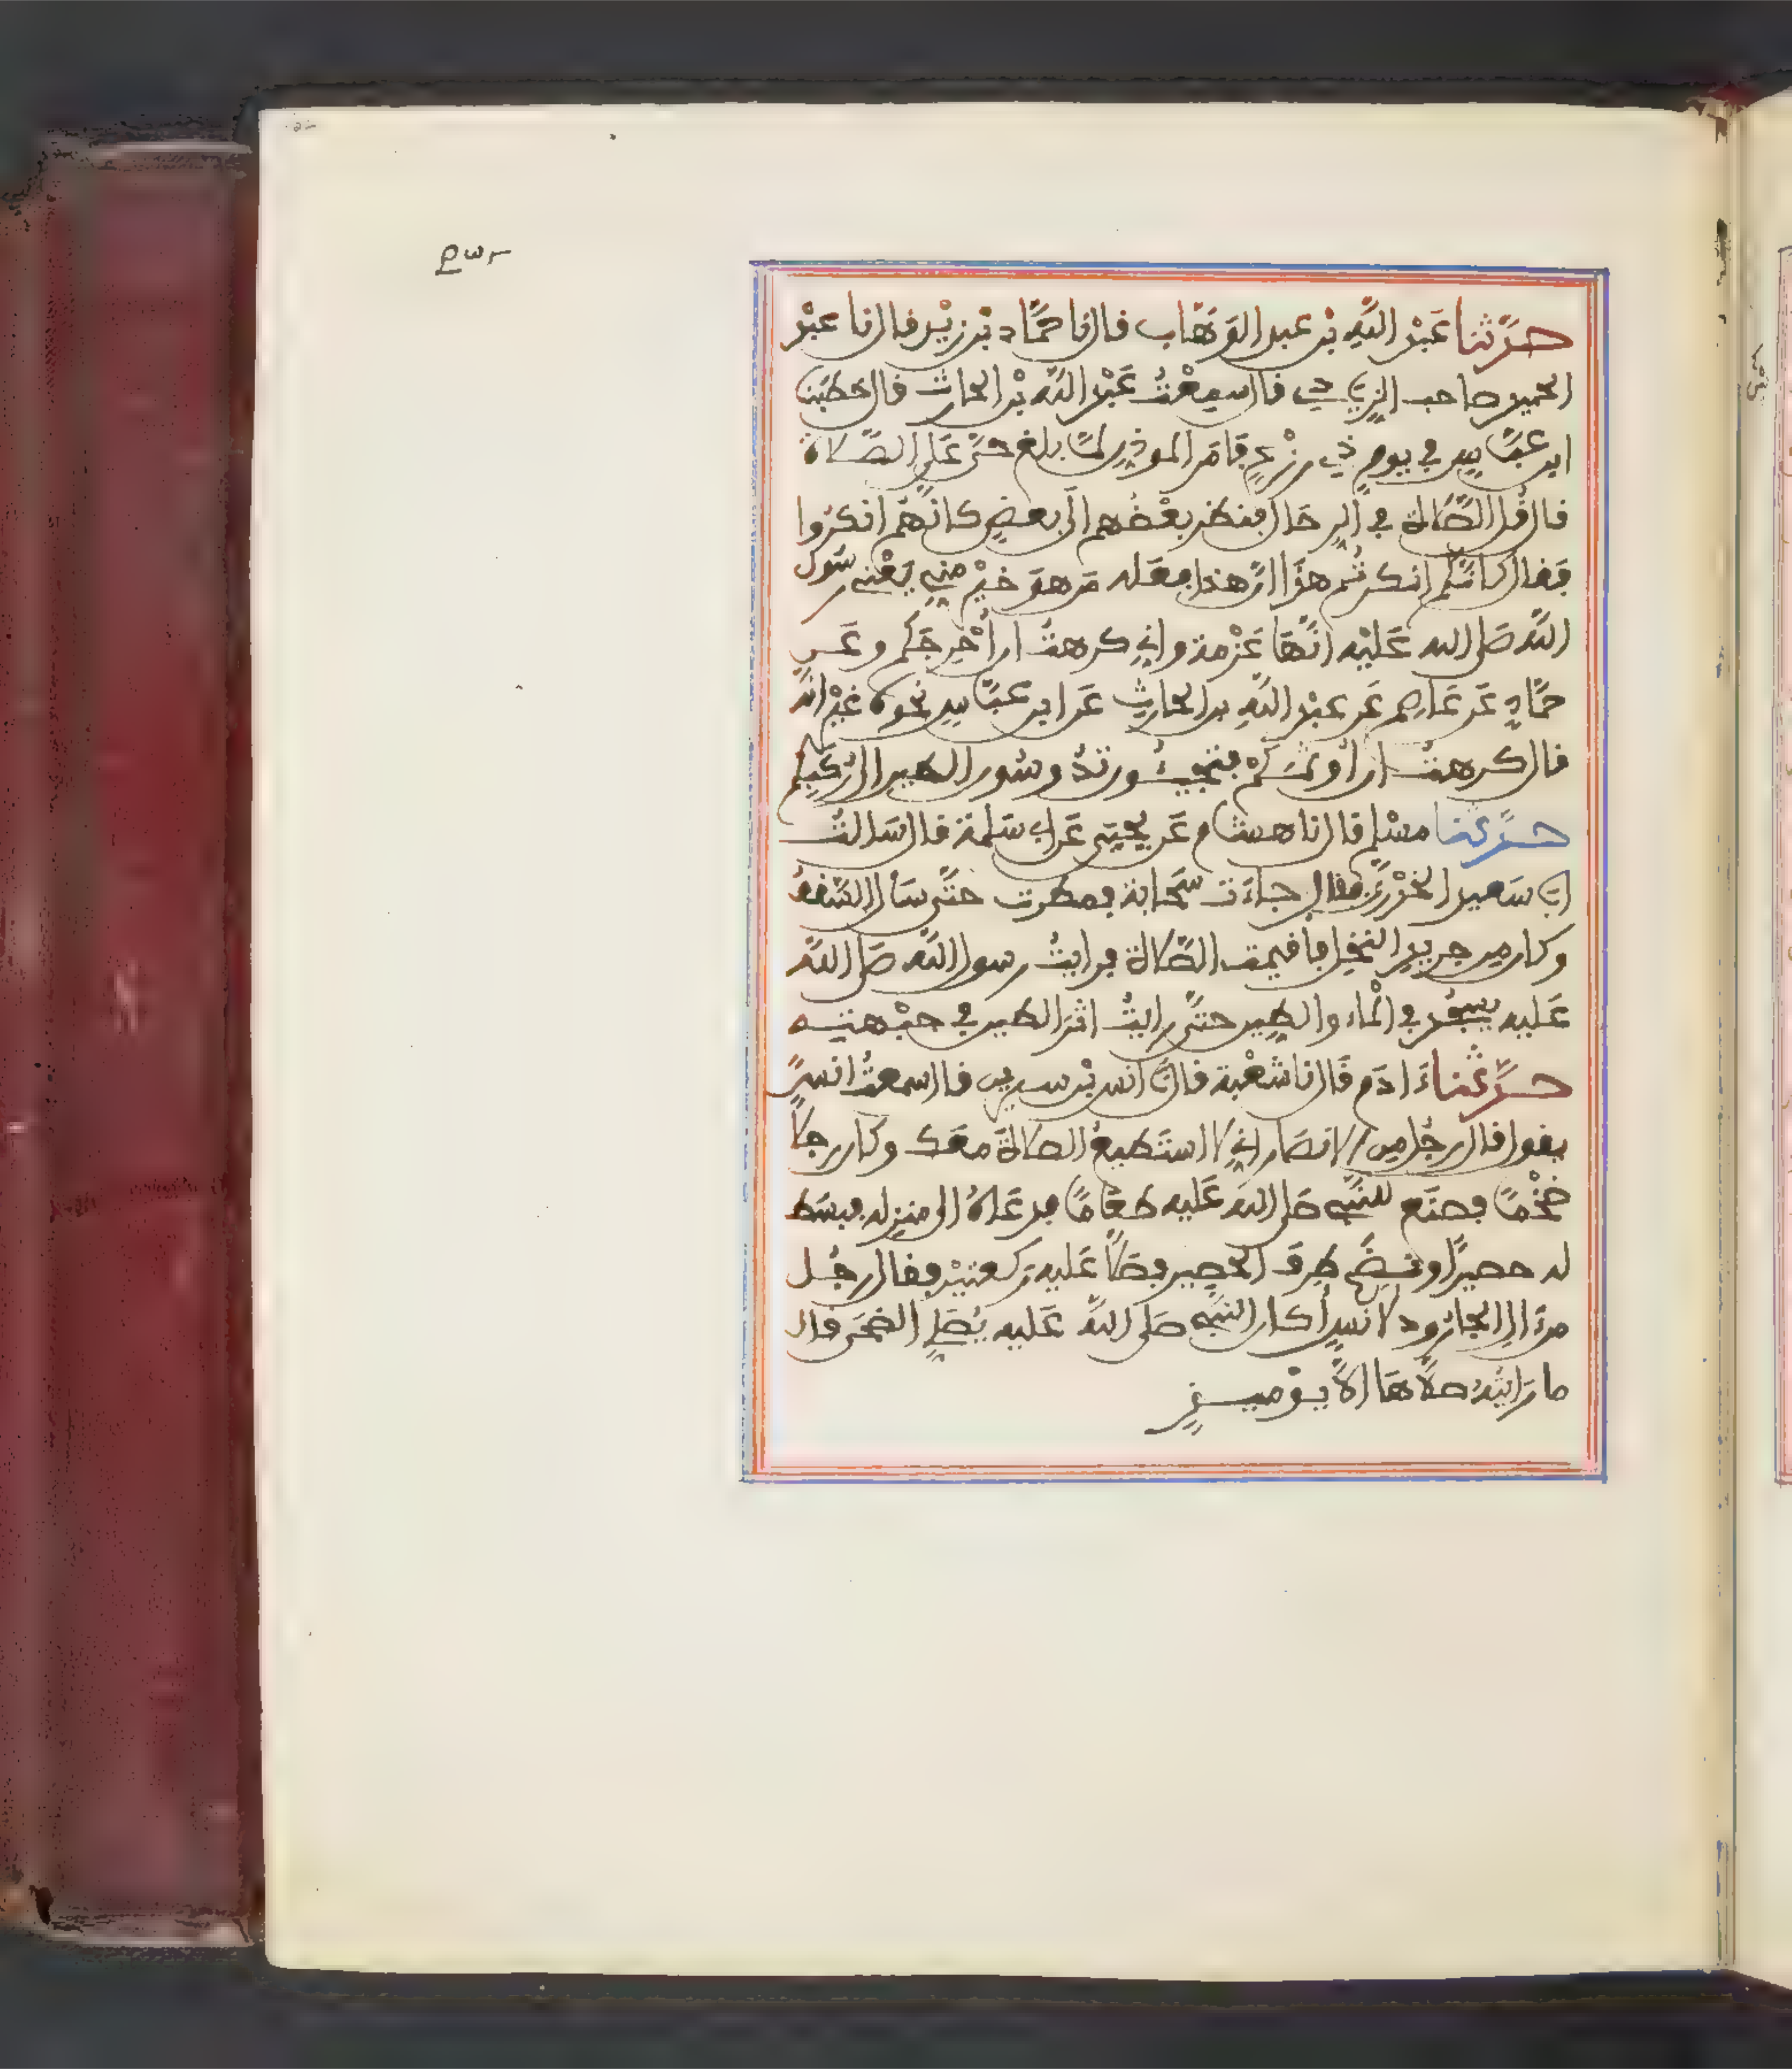 حدَّثنا عَبْدُ اللَّهِ بْن عبد الوَهَّاب قال نا حَمَّاد بْن زيْد قال نا عبْد
الحميد صاحب الزيادي قال سمِعْتُ عَبْدَ اللَّه بْن الحارث قال خطبَنا
ابن عبَّاسٍ في يوم ذي رزْغٍ فَأمَر الموذن لمَّا بلغ حيَّ عَلى الصَّلاة
قال قُل الصَّلاة في الرِحَال فنظر بعْضُهم الى بعضٍ كانَّهُم انكرُوا
فقال كانَّكم انكرتُم هذَا ان هذا فعَله مَن هوَ خيْر مني يَعْني رسُول
اللَّه صَلى الله عَليْه انَّهَا عَزْمة واني كرهتُ ان أُحْرِجَكم وعَن
حمَّادٍ عَن عَاصِم عَن عبْد اللَّهِ بن الحارِثِ عَن ابن عبَّاسٍ نحْوه غيْر انَّه
قال كرهتُ ان أُوثِمَكمْ فتجيئُون تدُوسُون الطين الى رُكَبِكم
حدَّثنا مسْلم قال نا هشام عَن يحْيَى عَن ابي سَلمة قال سَالتُ
ابَا سَعيد الخدْري فقال جاءَت سَحَابة فمطرت حتَّى سَال السَّقفُ
وكان مِن جريدِ النخل فأقيمت الصَّلاة فرايتُ رسول اللَّه صَلى اللَّه
عَليه يسجُد في الْماء والطِين حتَّى رايتُ اثَر الطين في جبْهته
حدَّثنا ءَادَم قَال نا شعْبة قال نا أنس بْن سيرين قال سمعتُ انسَ
يقول قال رجُل مِن الانصَار اني لا استَطيعُ الصلاةَ معَك وكان رجلاً
ضخْمًا فصنَع للنَّبي صَلى اللَّه عَليه طعَامًا فدعَاهُ الى منزله فبسَط
له حصيرًا ونضَح طرَف الحَصِير فصَلَّا عَليه ركعتيْن فقال رجُل
من ءال الجارُود لانسٍ أكان النَّبي صَلى اللَّه عَليه يُصَلِي الضحَى قال
ما رَايتُهُ صلَّاهَا الاَّ يوْميِذٍ